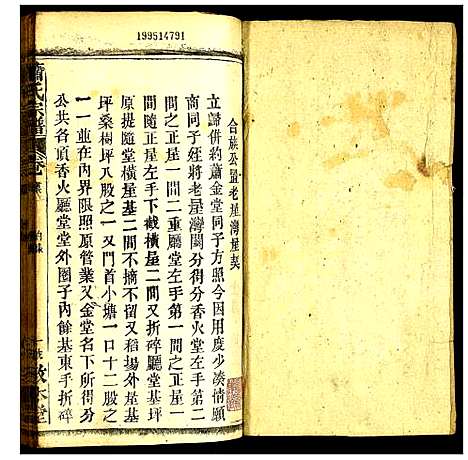 199514791
合族公置老屋灣屋契
立歸併約蕭金堂同子方照今因用度少湊情願
商同子姪將老屋灣關分得分香火堂左手第二
間之正屋一間二重廳堂左手第一間之正屋一
間隨正屋左手下截橫屋二間又折碎廳堂基坪
原提隨堂橫屋基二間不摘不留又稻場外星基
坪桑樹坪八股之一又門首小塘一口十二股之
一一並在內界限照原管業又金堂名下所得分
公共各頂香火廳堂堂外圈子內餘基東手折碎
蕭氏宗譜
敦本堂